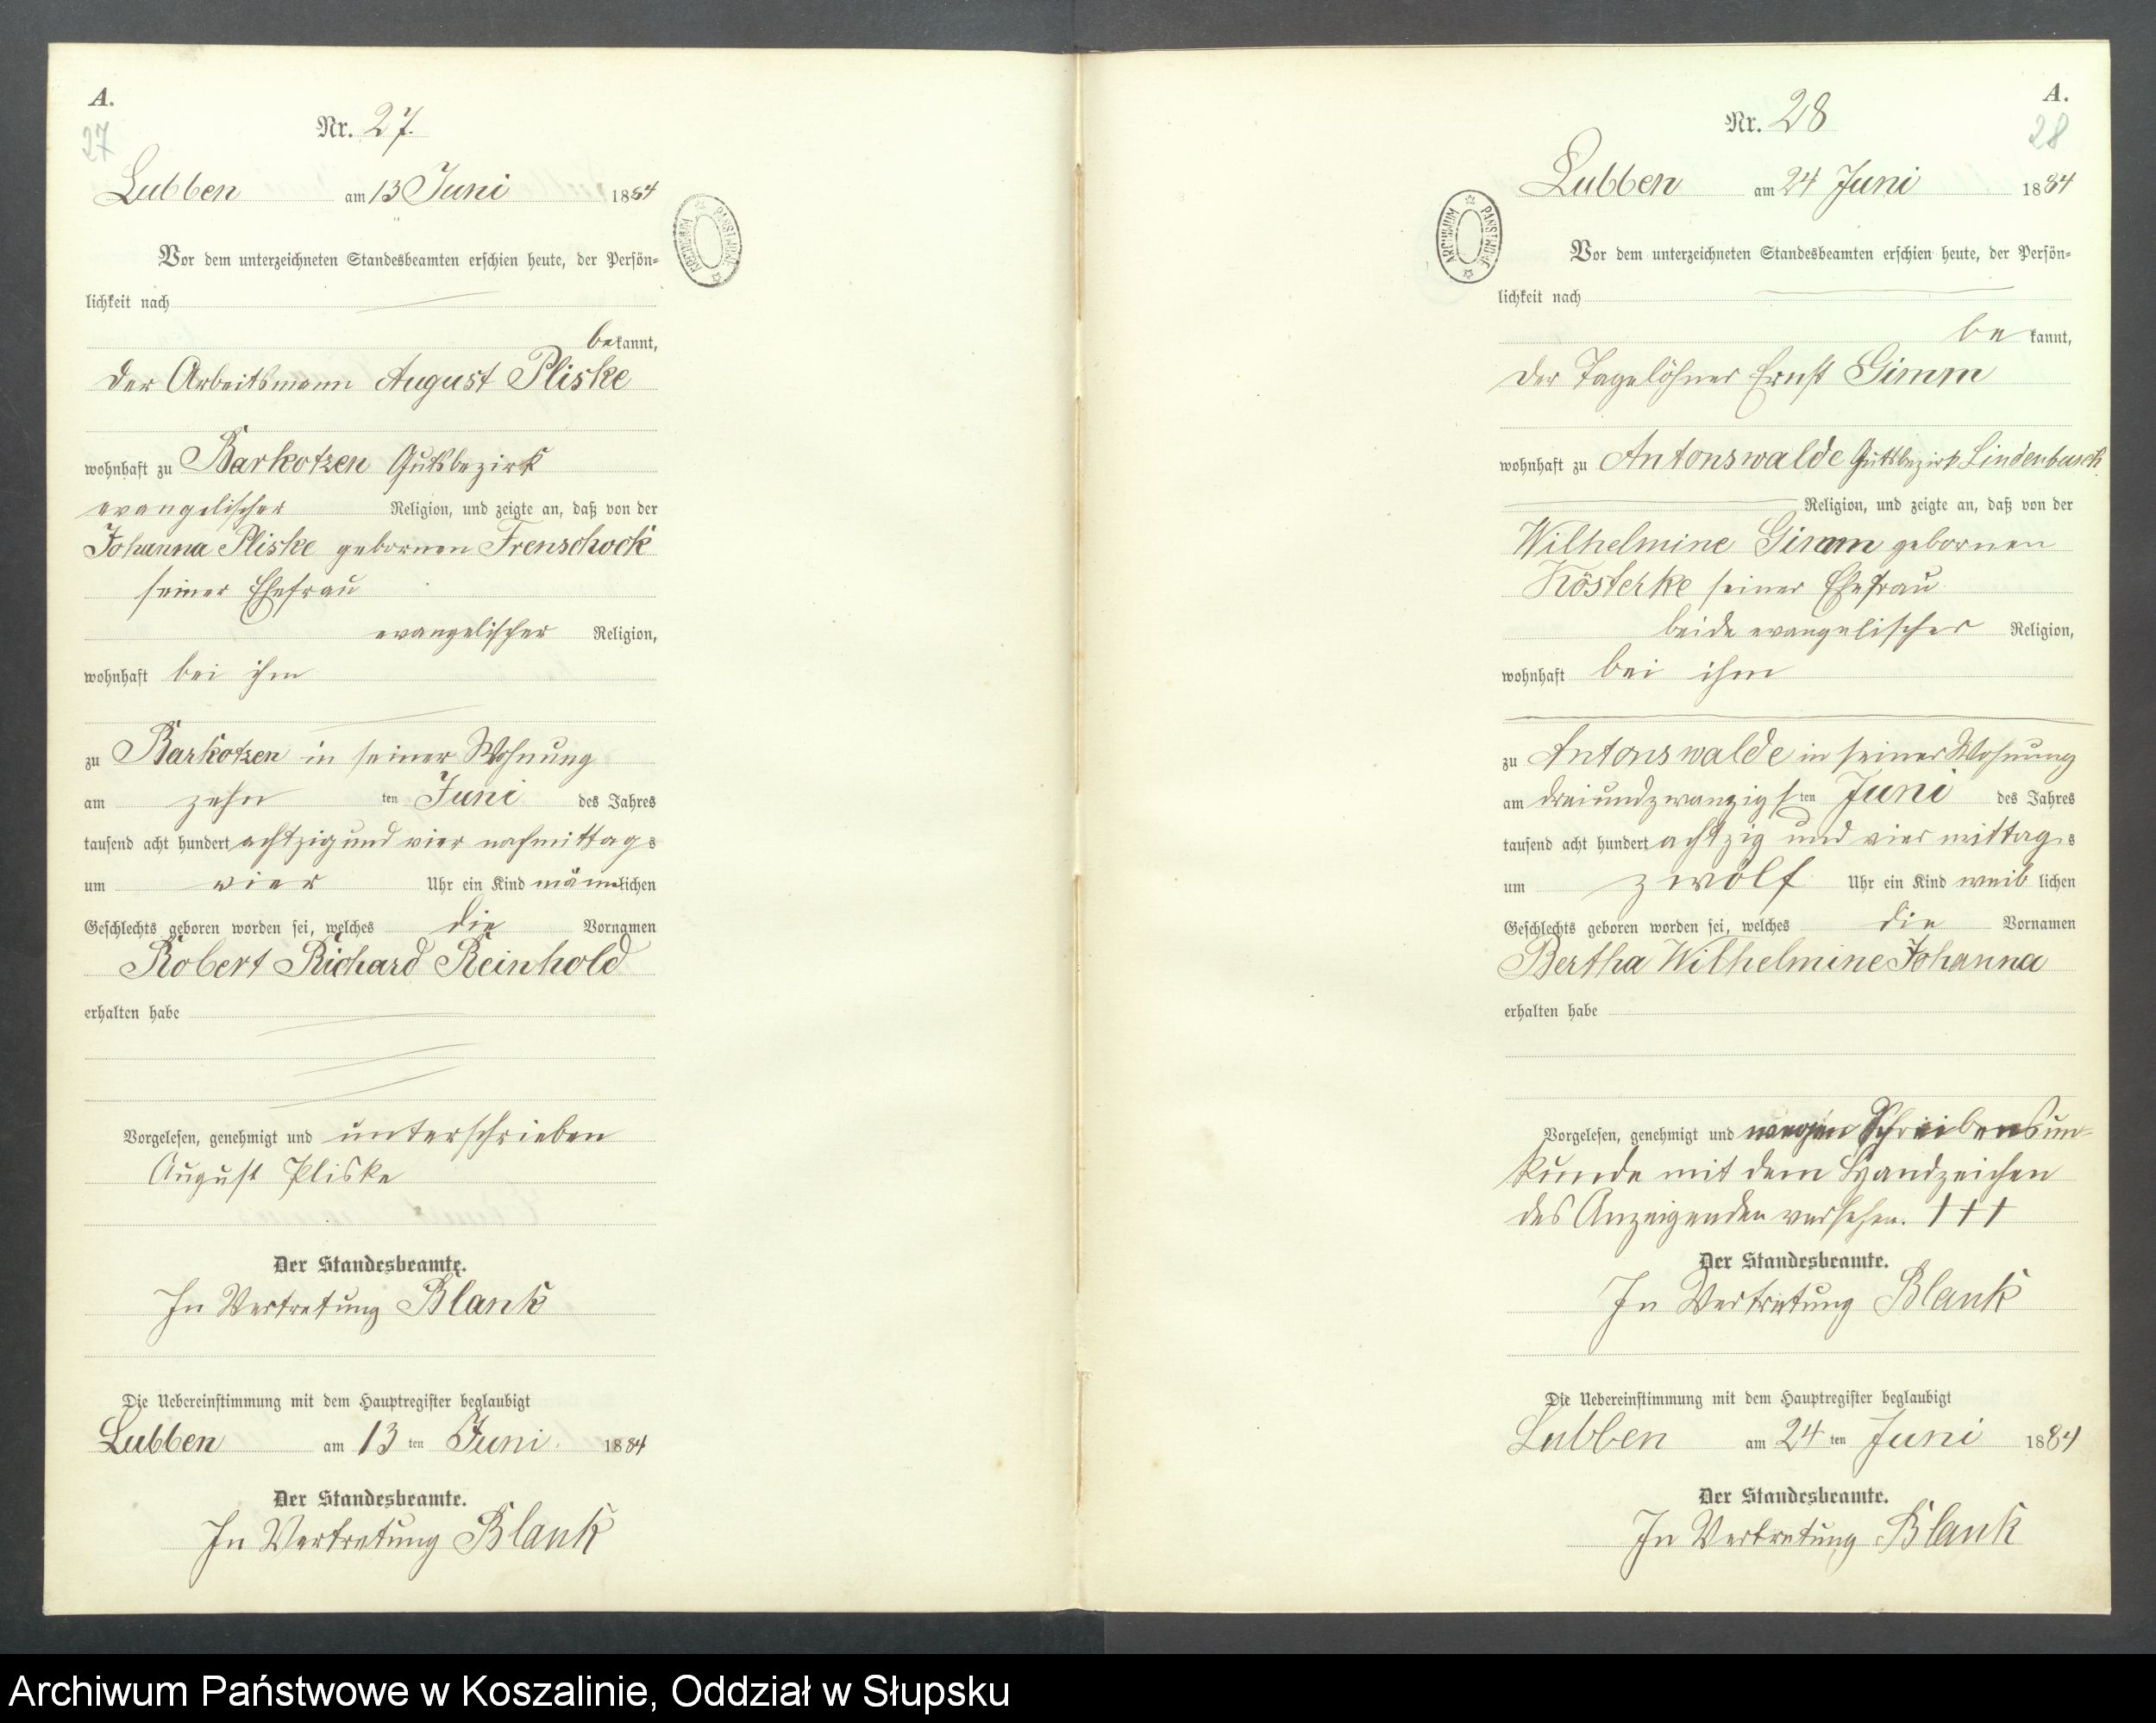 A.
27
Nr. 27.
Lubben am 13 Juni 1884
ARCHIWUM PAŃSTWOWE
Vor dem unterzeichneten Standesbeamten erschien heute, der Persön-
lichkeit nach
bekannt,
der Arbeitsmann August Pliske
wohnhaft zu Barkotzen Gutsbezirk
evangelischer Religion, und zeigte an, daß von der
Johanna Pliske gebornen Frenschock
seiner Ehefrau
evangelischer Religion,
wohnhaft bei ihm
zu Barkotzen in seiner Wohnung
am zehn ten Juni des Jahres
tausend acht hundert achtzig und vier nachmittags
um vier Uhr ein Kind männlichen
Geschlechts geboren worden sei, welches die Vornamen
Robert Richard Reinhold
erhalten habe
Vorgelesen, genehmigt und unterschrieben
August Pliske
Der Standesbeamte.
In Vertretung Blank
Die Uebereinstimmung mit dem Hauptregister beglaubigt
Lubben am 13 ten Juni 1884
Der Standesbeamte.
In Vertretung Blank
A.
28
Nr. 28
Lubben am 24 Juni 1884
ARCHIWUM PAŃSTWOWE
Vor dem unterzeichneten Standesbeamten erschien heute, der Persön-
lichkeit nach
be kannt,
der Tagelöhner Ernst Gimm
wohnhaft zu Antonswalde Gutsbezirk Lindenbusch
Religion, und zeigte an, daß von der
Wilhelmine Gimm gebornen
Kösterke seiner Ehefrau
beide evangelischer Religion,
wohnhaft bei ihm
zu Antonswalde in seiner Wohnung
am dreiundzwanzigsten Juni des Jahres
tausend acht hundert achtzig und vier mittags
um zwölf Uhr ein Kind weib lichen
Geschlechts geboren worden sei, welches die Vornamen
Bertha Wilhelmine Johanna
erhalten habe
Vorgelesen, genehmigt und wegen Schreibensun-
kunde mit dem Handzeichen
des Anzeigenden versehen. +++
Der Standesbeamte.
In Vertretung Blank
Die Uebereinstimmung mit dem Hauptregister beglaubigt
Lubben am 24 ten Juni 1884
Der Standesbeamte.
In Vertretung Blank
Archiwum Państwowe w Koszalinie, Oddział w Słupsku